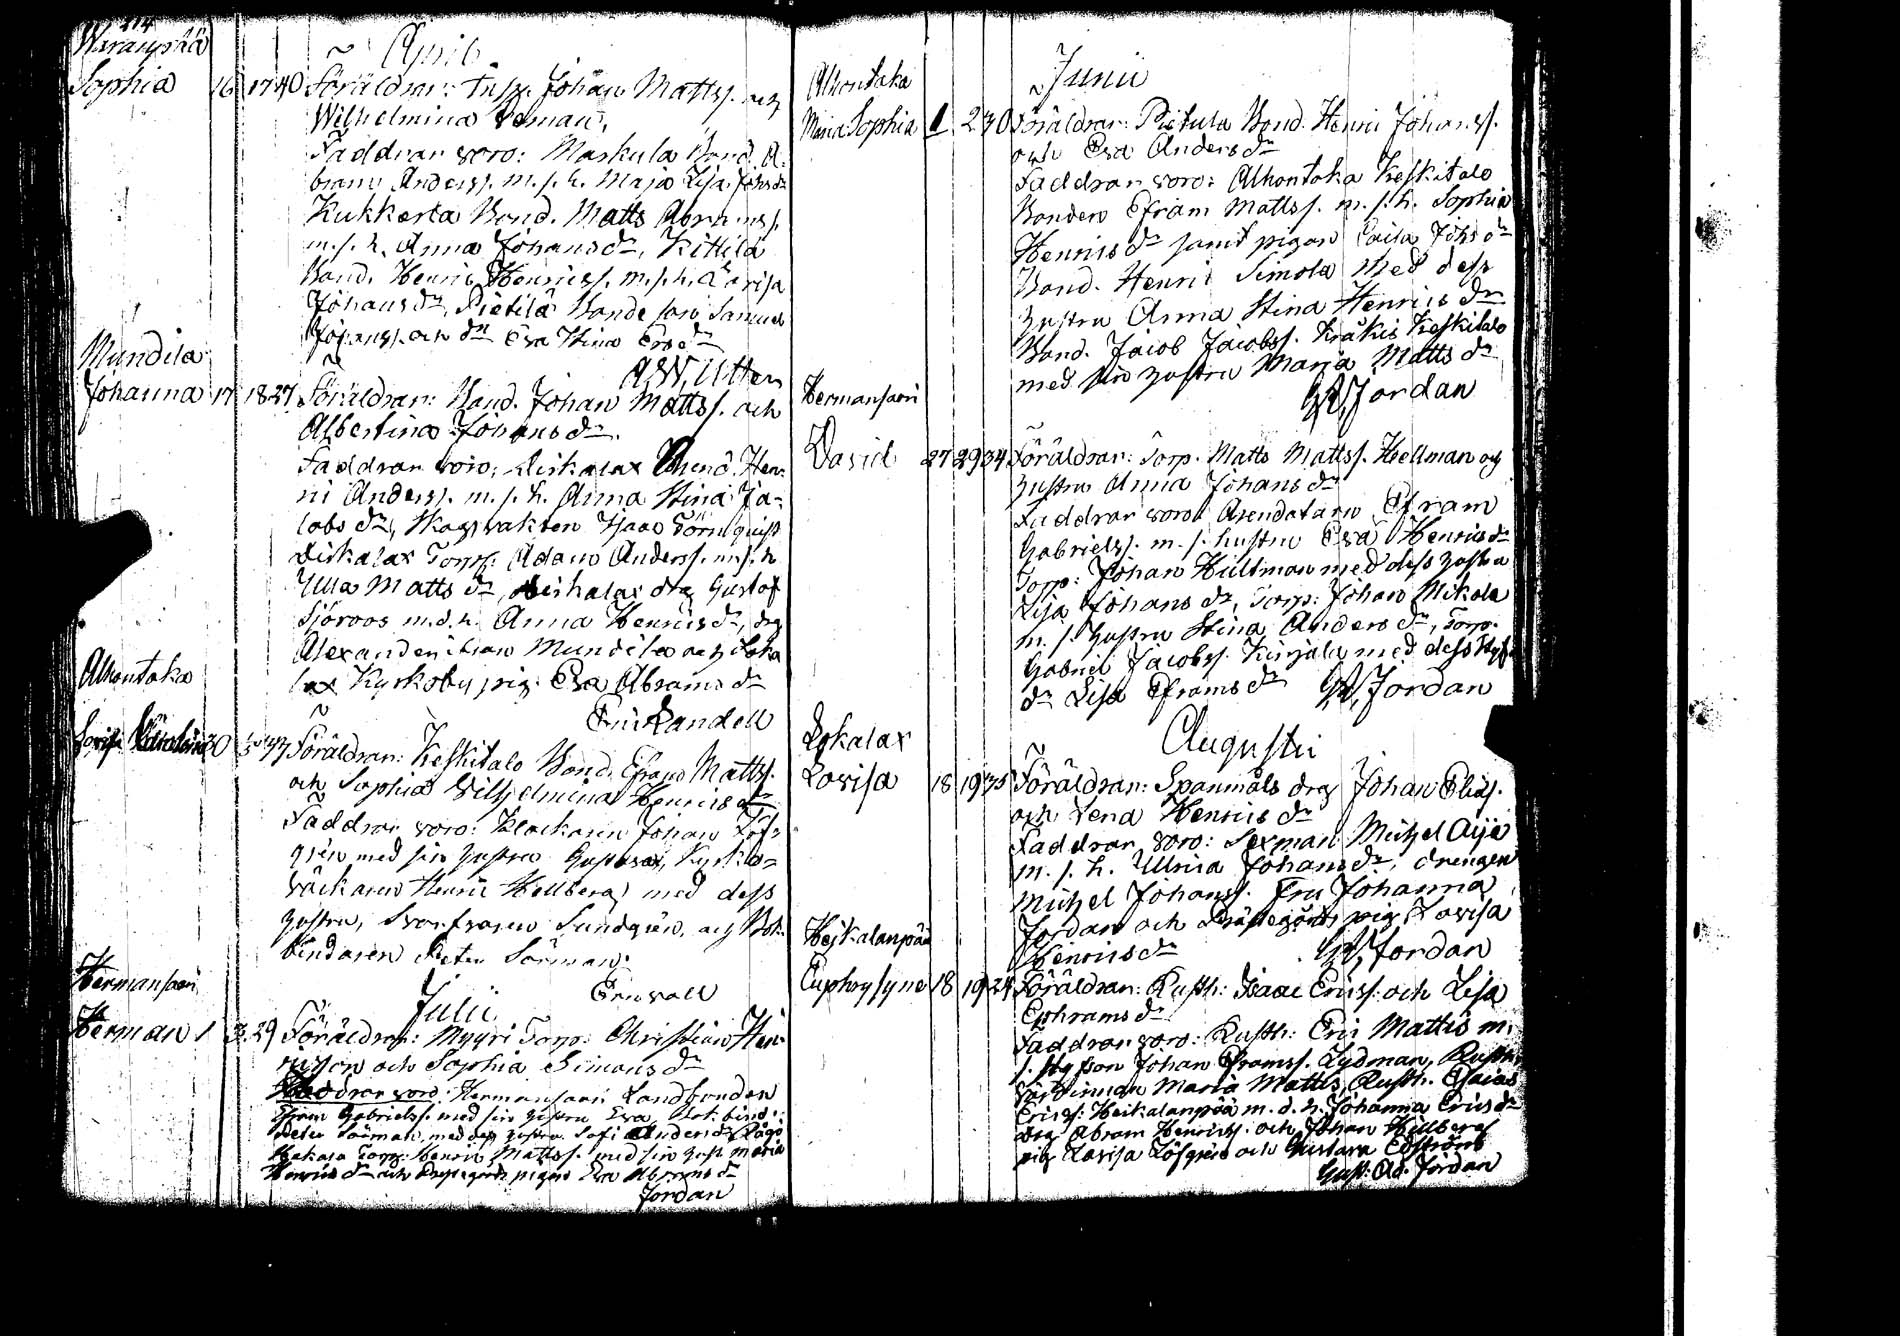 214
Waranpää
April
Sophia 16 17 40 Föräldrar: Insp. Johan Mattss. och
Wilhelmina
Faddrar voro: Maskula Bond. A-
bram Anderss. m. s. h. Maja Lisa Johs dr
Kukkarta Bond. Matts Abramss.
m. s. h. Anna Johans dr, Kittilä
Bond. Henric Henricss. m. s. h. Carisa
Johans dr, Pietilä Bonde son Samuel
Johanss. och dn Eva Stina Ers dr
A. W. Utter
Mundila
Johanna 17 18 27 Föräldrar: Bond. Johan Mattss. och
Albertina Johans dr.
Faddrar voro; Hen-
ric Anderss. m. s. h. Anna Stina Ja-
cobs dr, Skogvakten Isaac Törnquist
Torp: Adam Anderss. m. s. h
Ulla Matts dr, drg Gustof
Sjöroos m. d. h. Anna Henrics dr, drg
Alexander Mundila och Loka
lax Kyrkoby pig. Eva Abrams dr
Eric Landell
Alhontaka
30 Föräldrar: Keskitalo Bond. Efraim Mattss.
och Sophia Wilhelmina Henrics dr
Faddrar voro: Klockaren Johan Löf-
grén med sin hustru Gustava, Kyrko-
väckaren Henric Hellberg med dess
hustru, Svarfvaren Sundgrén, och Bok-
bindaren Peter Sörman.
Grenvall
Hermansaari
Julii
Herman 1 3 29 Föräldrar: Myyri Torp: Christian Hen-
ricsson och Sophia Simons dr
Faddrar voro: Hermansaari Landbonden
Efraim Gabrielss. med sin hustru Eva, Bokbind.
Peter Sörman med dess hustru Sofi Anders dr,
Torp: Henric Mattss. med sin hust. Maria
Henrics dr och Prestegårds pigan Eva Abrams dr
Jordan
Alhontaka
Junii
Maria Sophia 1 2 30 Föräldrar: Pietula Bond. Henric Johanss.
och Eva Anders dr
Faddrar voro: Alhontaka Keskitalo
Bonden Efraim Mattss. m. s. h. Sophia
Henrics dr samt pigan Caisa Johs dr
Bond. Henric Simola med dess
hustru Anna Stina Henrics dr
Bond. Jacob Jacobss. Keskitalo
med sin hustru Maria Matts dr
G. A. Jordan
Hermansaari
David 27 29 34 Föräldrar: Torp. Matts Mattss. Hellman och
hustru Anna Johans dr
Faddrar voro: Arendatorn Efraim
Gabrielss. m. s. hustru Eva Henrics dr
Torp: Johan Hultman med dess hustru
Lisa Johans dr, Torp: Johan Mikola
m. s. hustru Stina Anders dr, Torp:
Gabriel Jacobss. med dess Styf
dr Lisa Eframs dr G. A. Jordan
Lokalax
Augusti
Lovisa 18 19 35 Föräldrar: Spanmåls drg Johan Eliss.
och Lena Henrics dr
Faddrar voro: Sexman Michel
m. s. h. Ulrica Johans dr, drengen
Michel Johanss. Fru Johanna
Jordan och Prästegårds pig. Lovisa
Henrics dr G. A. Jordan
Heikalanpää
Euphrosyne 18 19 24 Föräldrar: Rusth: Isaac Ericss. och Lisa
Ephrams dr
Faddrar voro: Rusth: Eric Mattis m.
s. styfson Johan Eframss. Lydman, Rusth.
värdinnan Maria Mattis, Rusth. Esaias
Ericss: Heikalanpää m. d. h. Johanna Erics dr
drg Abram Henricss. och Johan Hellberg
pig Lovisa Löfgrén och Gustava Edström
Gust: Ad. Jordan